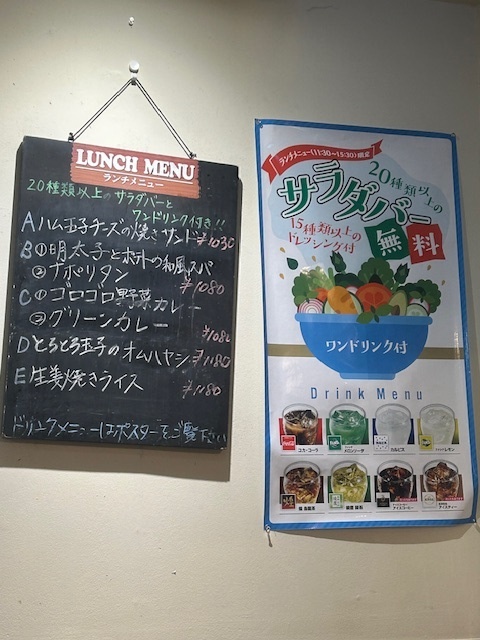 LUNCH MENU
ランチメニュー
20種類以上のサラダバーと
ワンドリンク付き!!
A ハム玉子チーズの焼きサンド ¥1030
B①明太子とポテトの和風スパ
②ナポリタン ¥1080
C①ゴロゴロ野菜カレー
②グリーンカレー ¥1080
D とろとろ玉子のオムハヤシ ¥1180
E 生姜焼きライス ¥1180
ドリンクメニューはポスターをご覧下さい
ランチメニュー(11:30~15:30)限定
20種類以上の
サラダバー
15種類以上の
ドレッシング付
無料
ワンドリンク付
Drink Menu
コカ・コーラ
メロンソーダ
カルピス
レモン
アイスコーヒー
アイスティー